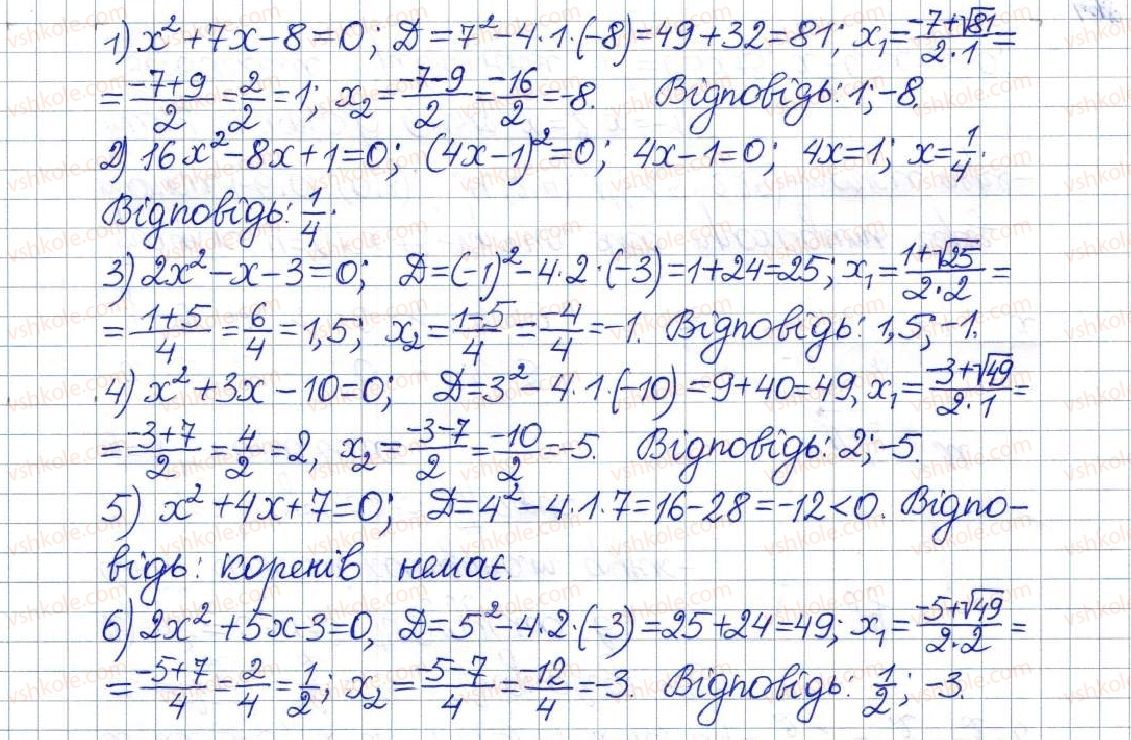 1) x² + 7x − 8 = 0; Д = 7² − 4·1·(−8) = 49 + 32 = 81; x₁ = (−7+√81)/(2·1) =
= (−7+9)/2 = 2/2 = 1; x₂ = (−7−9)/2 = −16/2 = −8. Відповідь: 1; −8.
2) 16x² − 8x + 1 = 0; (4x − 1)² = 0; 4x − 1 = 0; 4x = 1; x = 1/4.
Відповідь: 1/4.
3) 2x² − x − 3 = 0; Д = (−1)² − 4·2·(−3) = 1 + 24 = 25; x₁ = (1+√25)/(2·2) =
= (1+5)/4 = 6/4 = 1,5; x₂ = (1−5)/4 = −4/4 = −1. Відповідь: 1,5; −1.
4) x² + 3x − 10 = 0; Д = 3² − 4·1·(−10) = 9 + 40 = 49, x₁ = (−3+√49)/(2·1) =
= (−3+7)/2 = 4/2 = 2, x₂ = (−3−7)/2 = −10/2 = −5. Відповідь: 2; −5.
5) x² + 4x + 7 = 0; Д = 4² − 4·1·7 = 16 − 28 = −12 < 0. Відпо-
відь: коренів немає.
6) 2x² + 5x − 3 = 0, Д = 5² − 4·2·(−3) = 25 + 24 = 49; x₁ = (−5+√49)/(2·2) =
= (−5+7)/4 = 2/4 = 1/2; x₂ = (−5−7)/4 = −12/4 = −3. Відповідь: 1/2; −3.